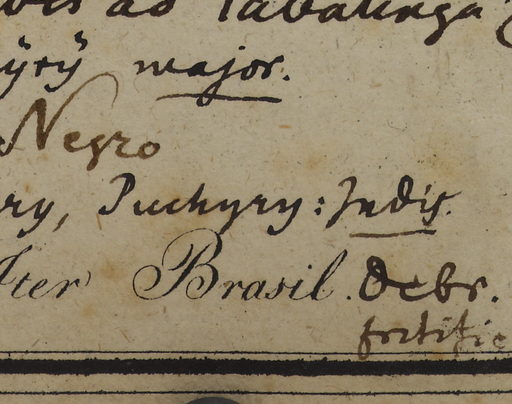 ad Tabatinga
yry major.
Negro
ry, Puchyry: Indis.
Iter Brasil. Octbr.